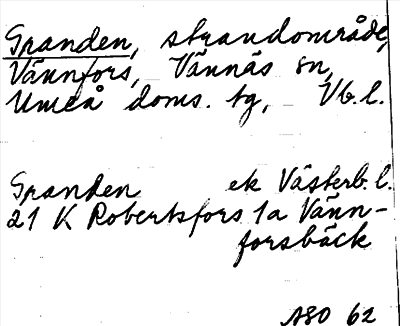 Granden, strandområde,
Vännfors, Vännäs sn,
Umeå doms. tg, Vb.l.
Granden ek Västerb.l.
21 K Robertsfors 1a Vänn-
forsbäck
ASO 62